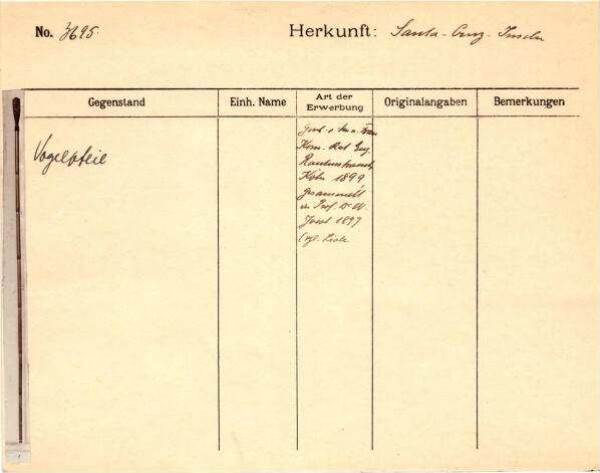 No. 3695. Herkunft: Santa-Cruz-Inseln
Gegenstand Einh. Name Art der Erwerbung Originalangaben Bemerkungen
Vogelpfeil
Kom. Rat Eug.
Rautenstrauch
Köln 1899
gesammelt
v. Prof Dr W.
Joest 1897